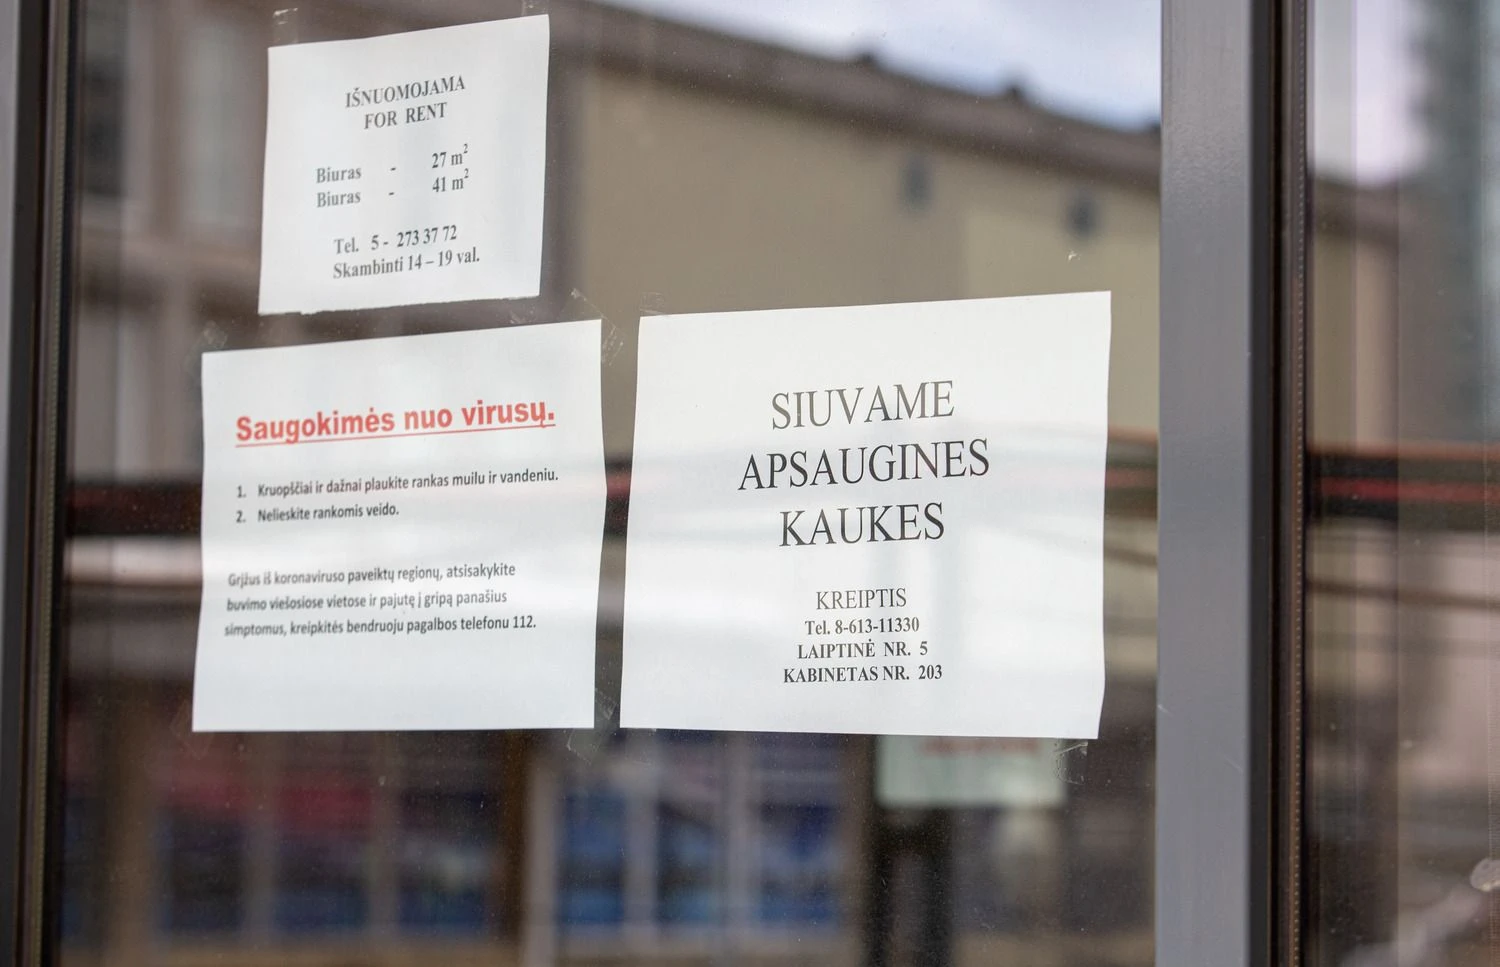 IŠNUOMOJAMA
FOR RENT
Biuras - 27 m²
Biuras - 41 m²
Tel. 5 - 273 37 72
Skambinti 14 – 19 val.
Saugokimės nuo virusų.
1. Kruopščiai ir dažnai plaukite rankas muilu ir vandeniu.
2. Nelieskite rankomis veido.
Grįžus iš koronaviruso paveiktų regionų, atsisakykite
buvimo viešosiose vietose ir pajutę į gripą panašius
simptomus, kreipkitės bendruoju pagalbos telefonu 112.
SIUVAME
APSAUGINES
KAUKES
KREIPTIS
Tel. 8-613-11330
LAIPTINĖ NR. 5
KABINETAS NR. 203